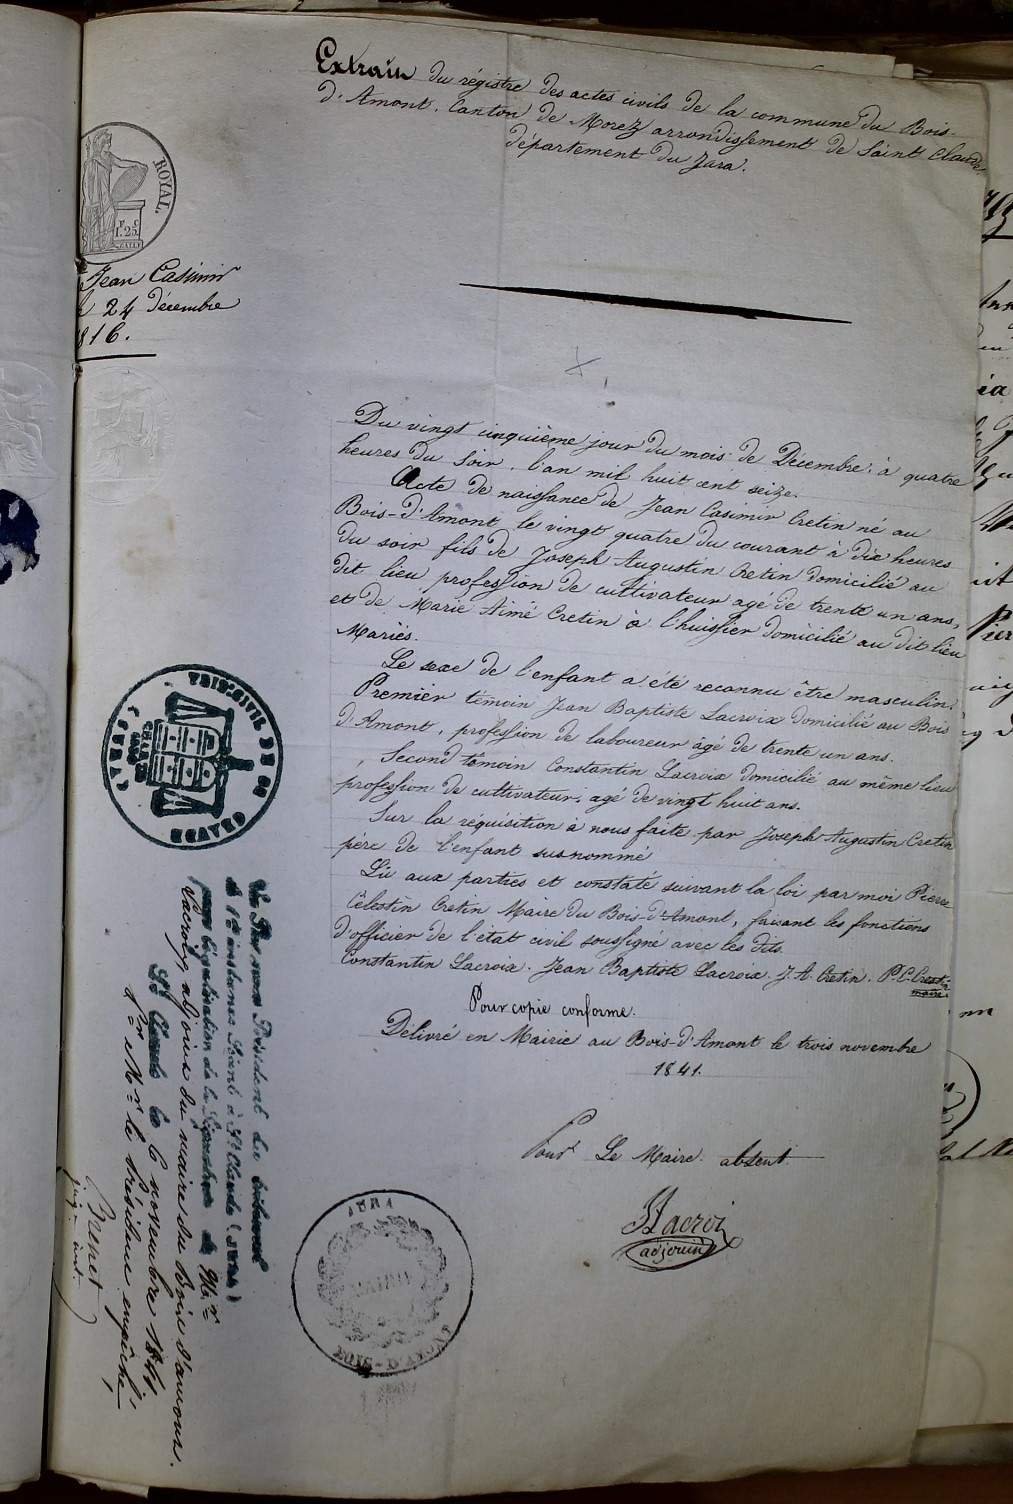 Extrait du régistre des actes civils de la commune du Bois-
d'Amont. Canton de Morez arrondissement de Saint Claude,
département du Jura.
ROYAL.
F. C
1.25
Jean Casimir
24 décembre
816.
Du vingt cinquième jour du mois de Décembre, à quatre
heures du Soir, l'an mil huit cent seize.
Acte de naissance de Jean Casimir Cretin né au
Bois-d'Amont le vingt quatre du courant à dix heures
du soir fils de Joseph Augustin Cretin domicilié au
dit lieu profession de cultivateur agé de trente un ans,
et de Marie Aimé Cretin à l'huissier domicilié au dit lieu
Mariés.
Le sexe de l'enfant a été reconnu être masculin.
Premier témoin Jean Baptiste Lacroix domicilié au Bois
d'Amont, profession de laboureur âgé de trente un ans.
Second témoin Constantin Lacroix domicilié au même lieu
profession de cultivateur, agé de vingt huit ans.
Sur la réquisition à nous faite par Joseph-Augustin Cretin
père de l'enfant susnommé
Lù aux parties et constaté suivant la loi par moi Pierre
Célestin Cretin Maire du Bois-d'Amont, faisant les fonctions
d'officier de l'état civil soussigné avec les dits
Constantin Lacroix. Jean Baptiste Lacroix. J. A. Cretin. P. C. Cretin
maire.
Pour copie conforme.
Délivré en Mairie au Bois-d'Amont le trois novembre
1841.
Pour Le Maire absent
Lacroi
adjoint
TRIB-CIVIL DE ST CLAUDE (JURA)
CHARTE
DE 1830
Président du tribunal
de 1re instance séant à St Claude (JURA)
pour légalisation de la Signature de Mr.
Lacroix, adjoint du maire du Bois d'amont.
St Claude le 6 novembre 1841
Pr. Mr. le Président empêché,
juge inst.
JURA
MAIRIE
BOIS-D'AMONT